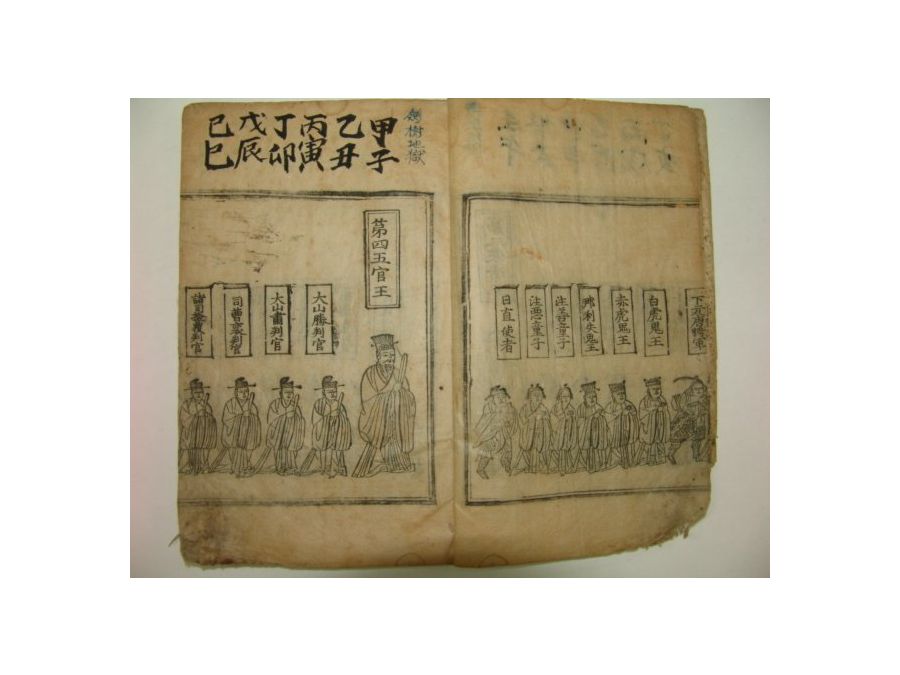 下元唐將軍
白虎鬼王
赤虎鬼王
那利失鬼王
注善童子
注惡童子
日直使者
劍樹地獄
甲子
乙丑
丙寅
丁卯
戊辰
己巳
第四五官王
大山勝判官
大山肅判官
司曹裴判官
判官